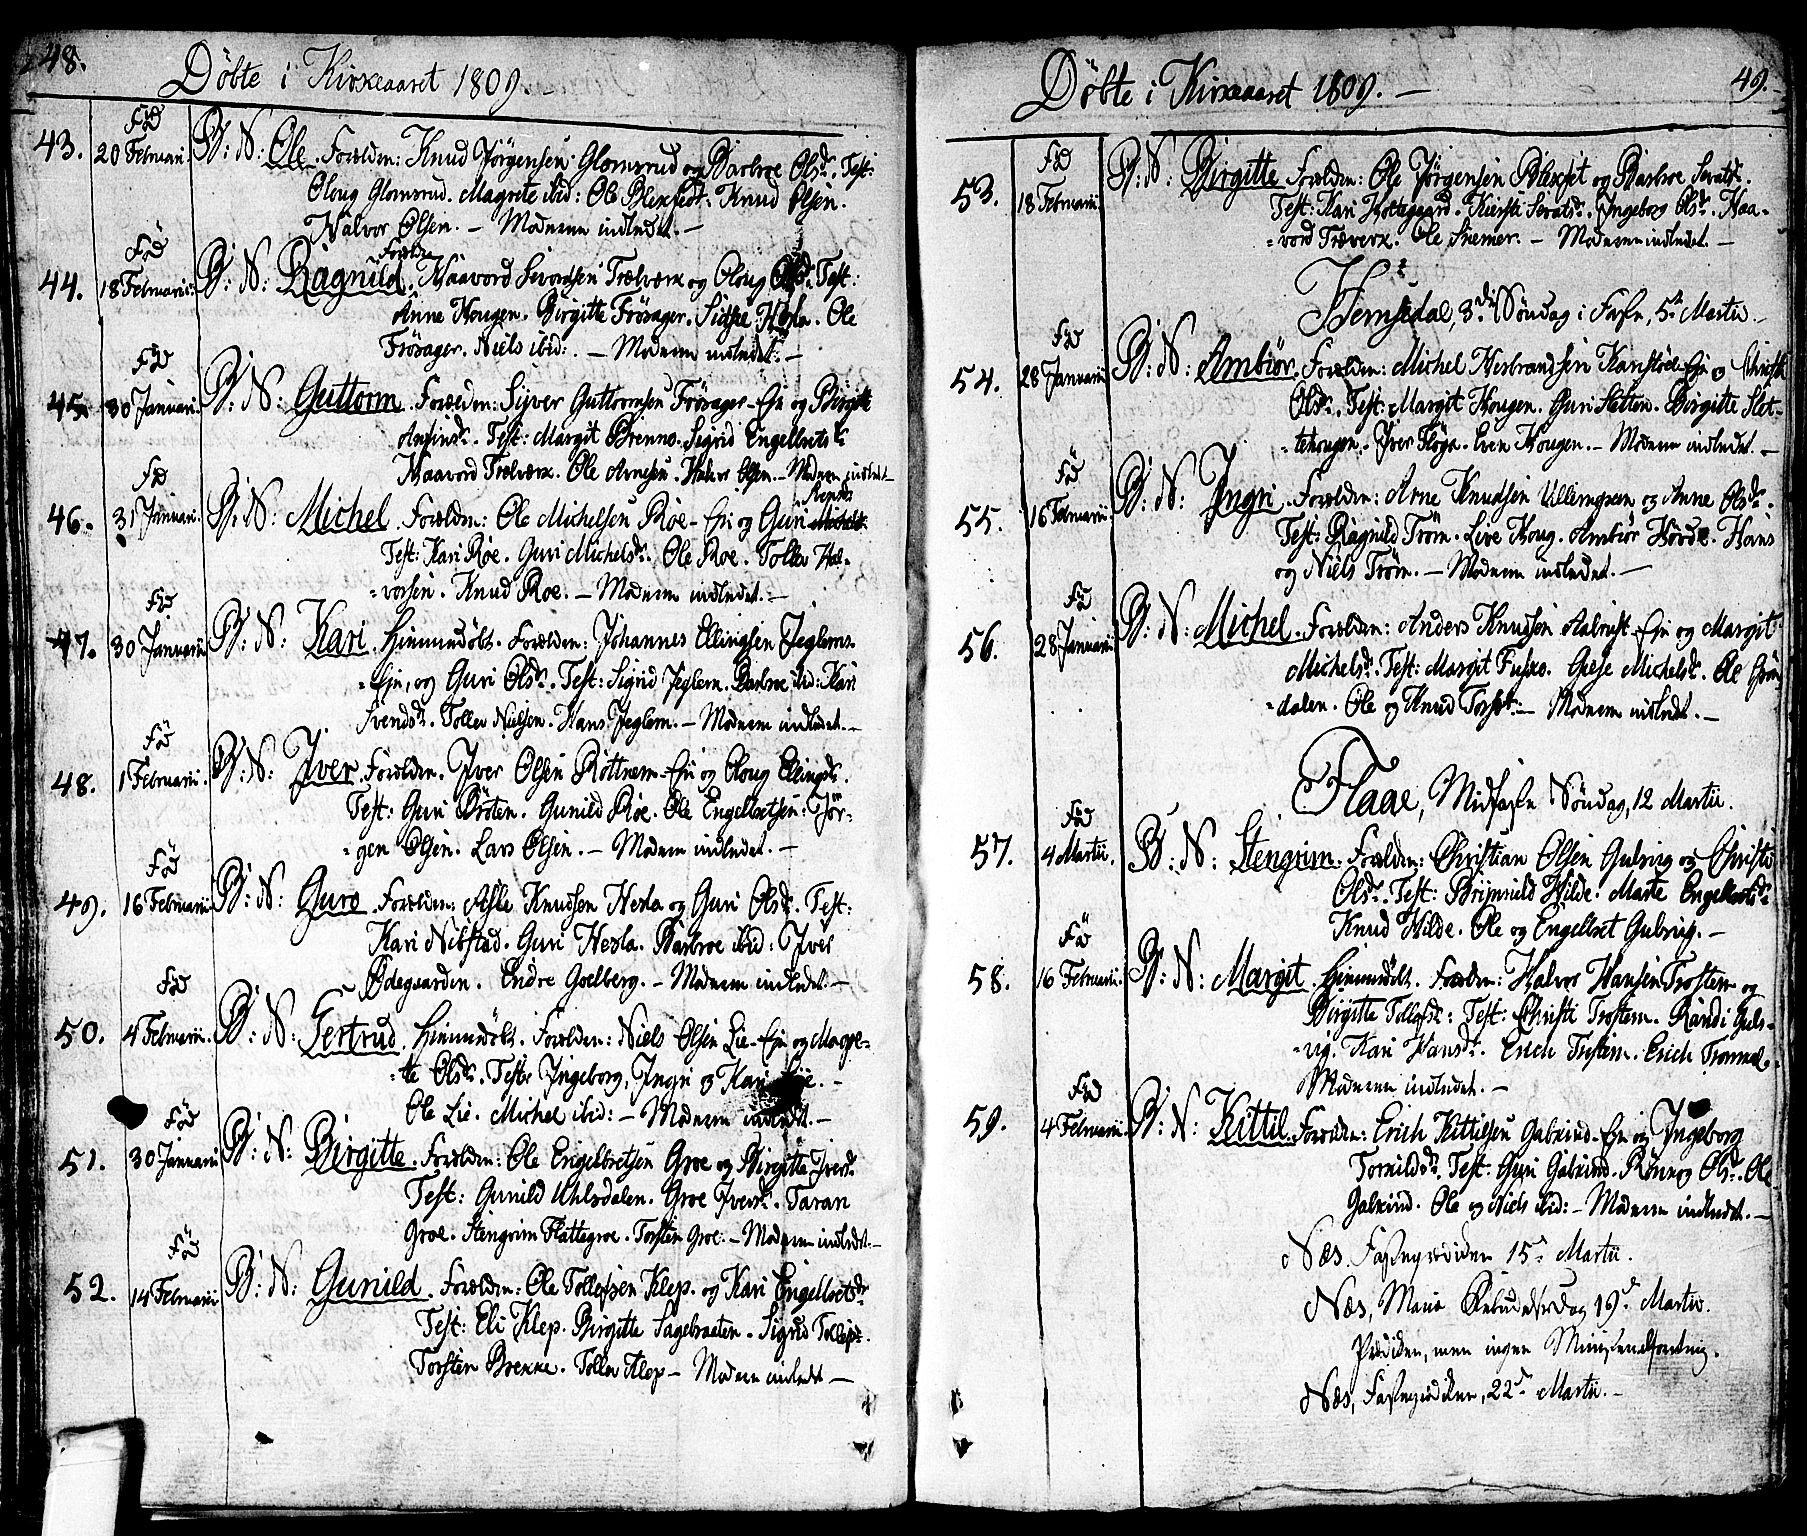 48.
Döbte i Kirkeaaret 1809. –
43. Fød 20 Februarii. B: N: Ole. Forælden: Knud Jörgensen Glomsrud og Barbroe Olsd. Test:
Oloug Glomsrud. Magrete ibid: Ole Blexfedt. Knud Olsen.
Halvor Olsen. – Moderen indledet. –
44. Fød 18 Februarii. B: N: Ragnild. Forælden: Haavord Trælværk og Oloug Olsd. Test:
Anne Hougen. Birgitte Frösager. Sidsel Hesla. Ole
Frösager. Niels ibid: – Moderen indledet. –
45. Fød 30 Januarii. B: N: Guttorm. Forælden: Siver Guttormsen Frösager-Eje og Birgitte
Test: Margit Brenno. Sigrid Engelbretsd.
Haavord Trælværk. Ole Arnesen. Halvor Olsen. – Moderen indledet –
46. Fød 31 Januarii. B: N: Michel. Forælden: Ole Michelsen Roe-Eje og Guri
Test: Kari Roe. Guri Michelsd. Ole Roe. Tollev Hal-
vorsen. Knud Roe. – Moderen indledet. –
47. Fød 30 Januarii B: N: Kari. Hjemmedöbt. Forælden: Johannes Ellingsen Jeglems
Eje, og Guri Olsd. Test: Sigrid Jeglem. Barbroe ibid: Kari
Svendsd. Tollev Nielsen. Hans Jeglem. – Moderen indledet. –
48. Fød 1 Februarii. B: N: Iver. Forælden. Iver Olsen Rottnem-Eje og Oloug Ellingsd.
Test: Guri Börten. Gunild Roe. Ole Engelbretsen. Jör-
gen Olsen. Lars Olsen. – Moderen indledet. –
49. Fød 16 Februarii B: N: Guro. Forælden: Asle Knudsen Hesla og Guri Olsd. Test:
Kari Nibstad. Guri Hesla. Barbroe ibid: Iver
Ödegaarden. Endre Goelberg. – Moderen indledet. –
50. Fød 4 Februarii. B: N: Gertrud. Hjemmedöbt. Forælden: Niels Olsen Lie-Eje og Magre-
te Olsd. Test: Ingeborg, Ingri og Kari Lie. –
Ole Lie. Michel ibid: – Moderen indledet. –
51. Fød 30 Januarii B: N: Birgitte. Forælden: Ole Engelbretsen Groe og Birgitte Iversd.
Test: Gunild Uhlsdalen. Groe Iversd. Taran
Groe. Stengrim Flattegroe. Torsten Groe. – Moderen indledet. –
52. Fød 14 Februarii B: N: Gunild. Forælden: Ole Tollefsen Klep. og Kari Engelbretsd.
Test: Eli Klep. Birgitte Sagebraaten. Sigrid Tollefsd.
Torsten Brekke. Tollev Klep – Moderen indledet –
49.
Döbte i Kirkeaaret 1809. –
53. Fød 18 Februarii. B: N: Birgitte. Forælden: Ole Jörgensen Blexset og Barbroe
Test: Kari Holtegaard. Kiersti Ingeborg Olsd. Haa-
vord Træværk. Ole – Moderen indledet. –
Hemsedal, 3die Söndag i Faste, 5te Martii. –
54. Fød 28 Januarii B: N: Ambiör. Forælden: Michel Herbrandsen Eje og Christi
Olsd. Test: Margit Hougen. Guri Sletten. Birgitte Slet-
tehougen. Iver Flöga. Even Hougen. – Moderen indledet. –
55. Fød 16 Februarii. B: N: Ingri. Forælden: Arne Knudsen Ulleengreen og Anne Olsd.
Test: Ragnild Tröm. Live Houg. Ambiör Hans
og Niels Tröm. – Moderen indledet. –
56. Fød 28 Januarii B: N: Michel. Forælden: Anders Knudsen Aalrust-Eje og Margit
Michelsd. Test: Margit Fusko. Giese Michelsd. Ole Grön-
dalen. Ole og Knud Torset. – Moderen indledet. –
Flaae, Midfaste Söndag, 12 Martii.
57. Fød 4 Martii. B: N: Stengrim. Forælden: Christian Olsen Gulsvig og Christi
Olsd. Test: Brynild Hilde. Marte Engelbretsd.
Knud Hilde. Ole og Engelbret Gulsvig. –
58. Fød 16 Februarii. B: N: Margit. Hjemmedöbt. Forælden: Halvor Hansen Trostem og
Birgitte Tollefsd. Test: Christi Trostem. Randi Guls-
vig. Kari Hansd. Erich Trostem. Erich
Moderen indledet. –
59. Fød 4 Februarii B: N: Kittil. Forælden: Erich Kittilsen Gabrind-Eje og Ingeborg
Torkildsd. Test: Guri Gabrind. Rönnog Olsd. Ole
Gabrind. Ole og Niels ibid: – Moderen indledet. –
Næs. Fasteprædiken 15de Martii.
Næs, Mariæ Bebudelsesdag 19de Martii.
Prædiken, men ingen Ministerialforretning.
Næs, Fasteprædiken, 22de Martii. –